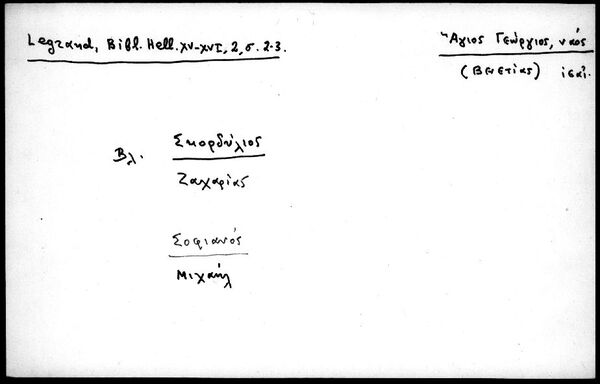 Legrand, Bibl. Hell. XV-XVI, 2, σ. 2-3.
Ἅγιος Γεώργιος, ναός
(Βενετίας)
Βλ. Σκορδύλιος
Ζαχαρίας
Σοφιανός
Μιχαήλ